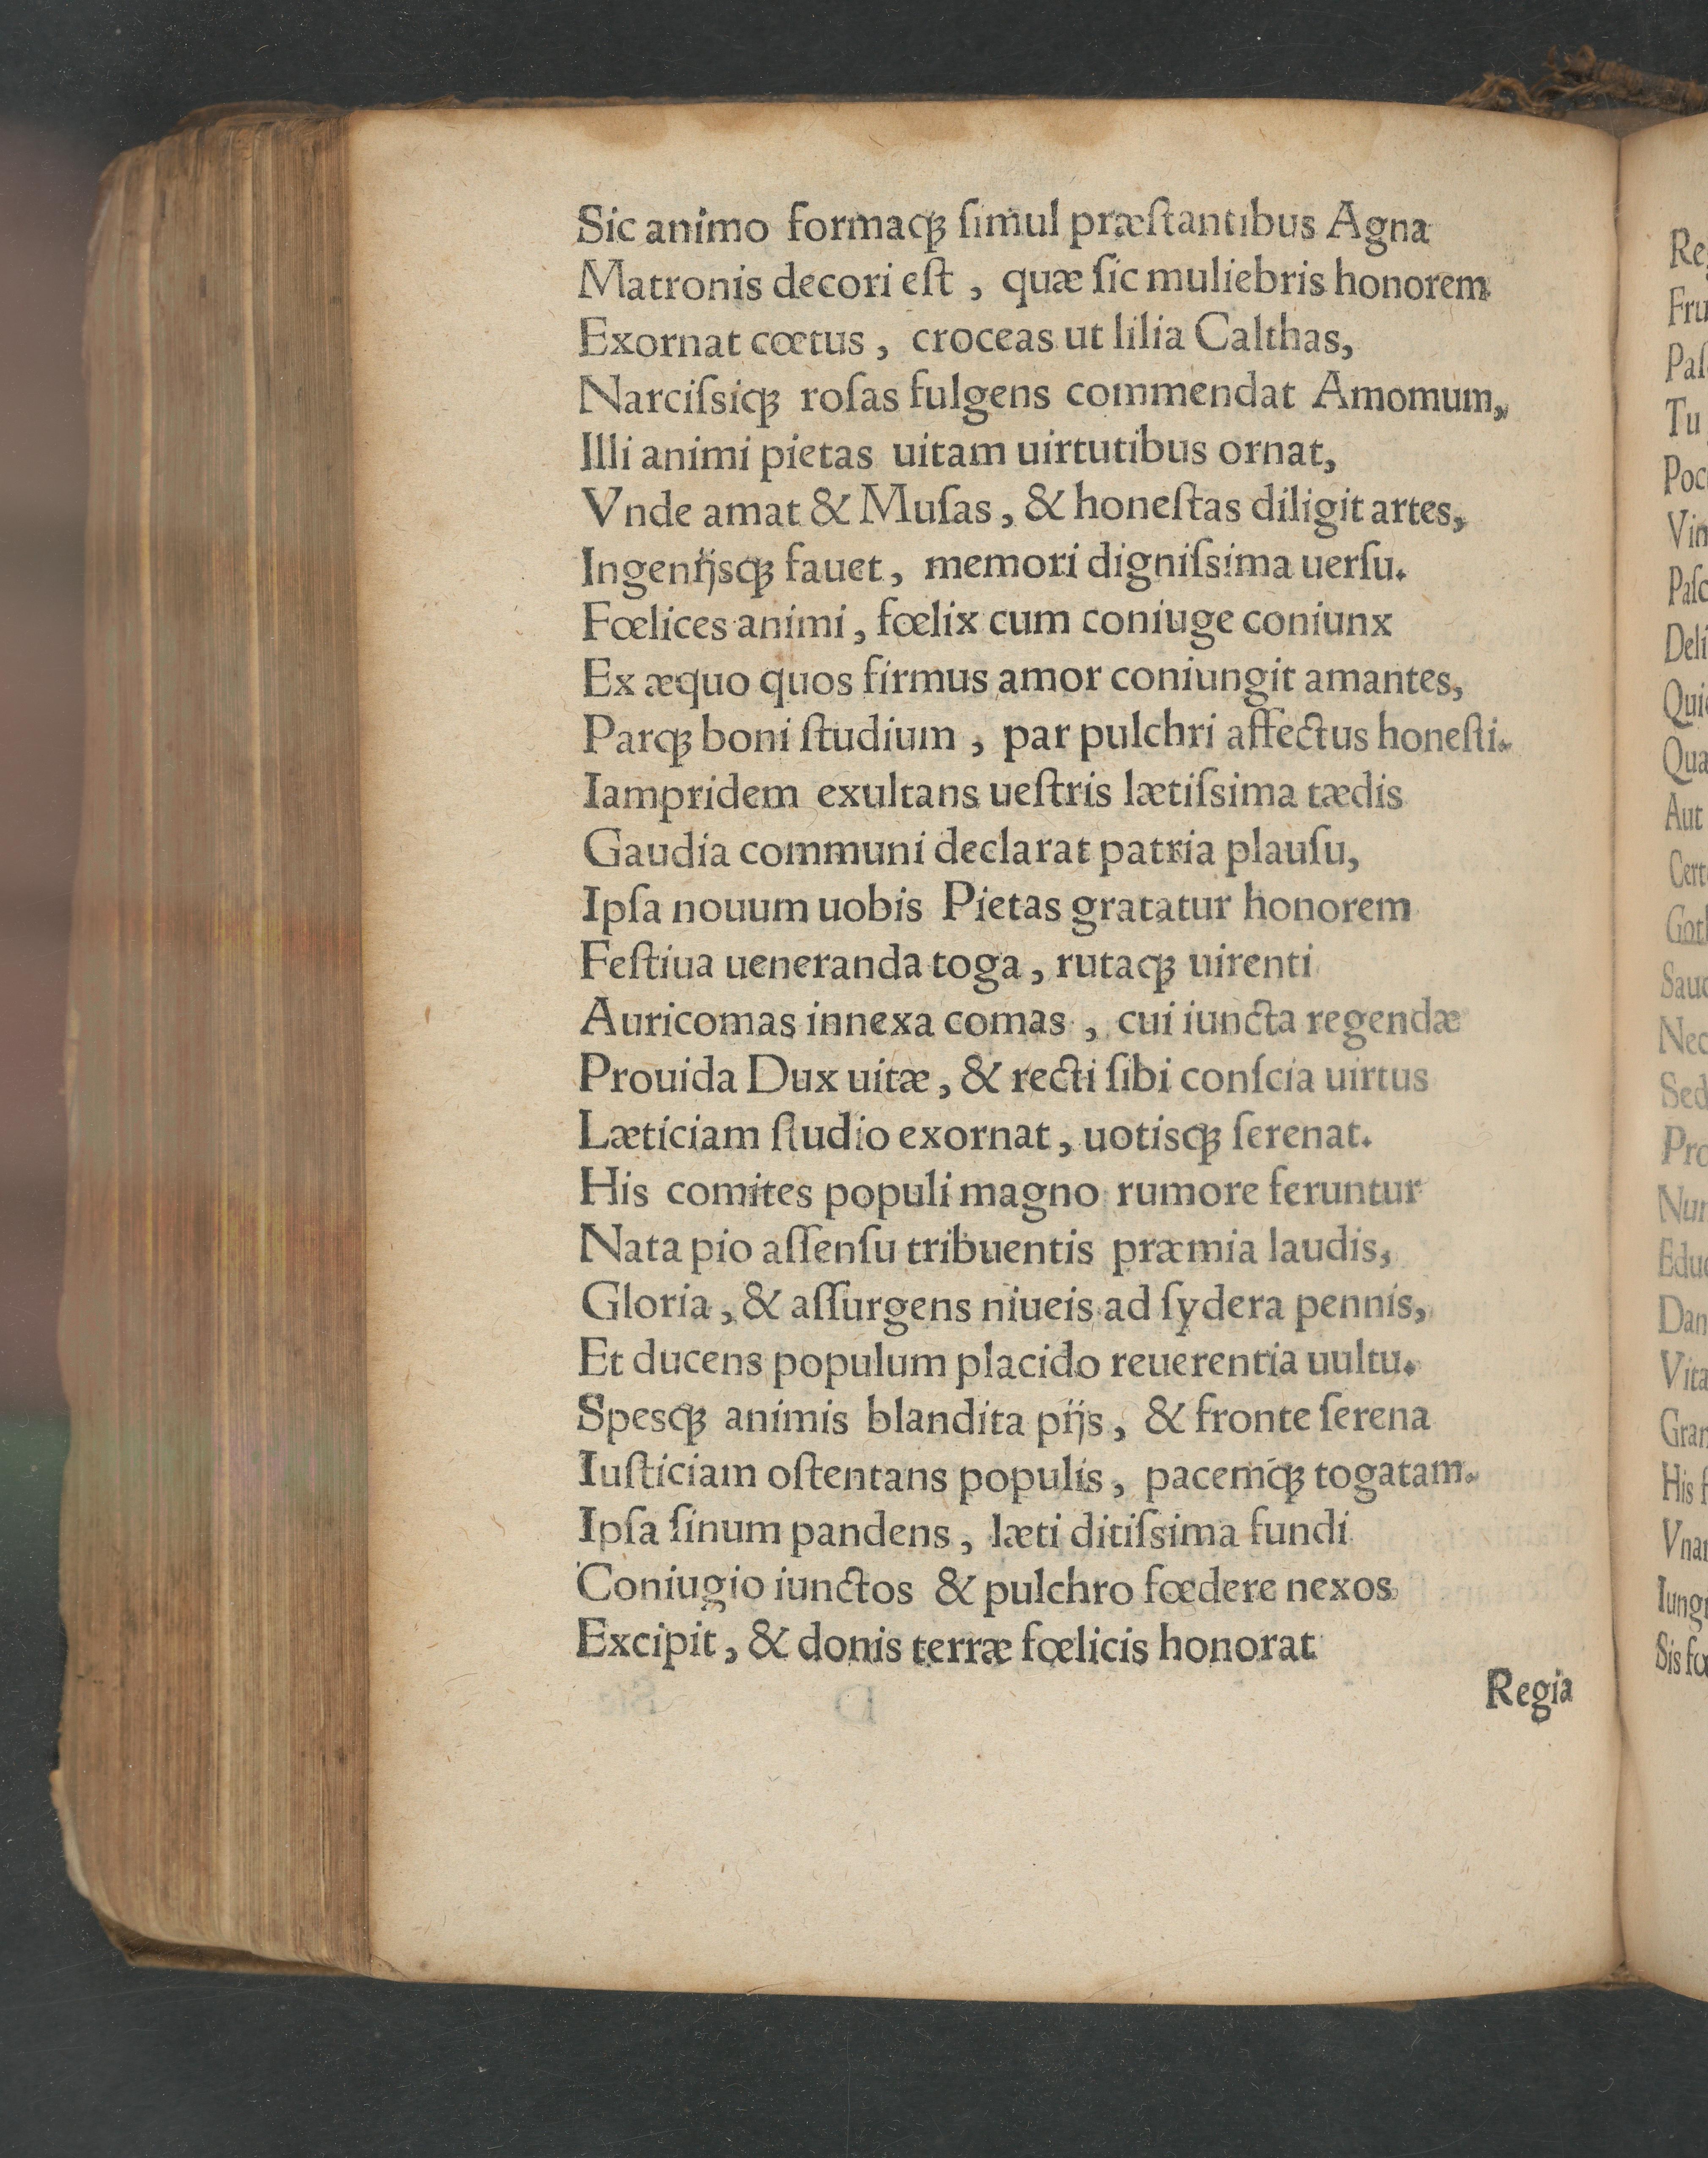 Sic animo formaqꝫ ſimul præſtantibus Agna
Matronis decori eſt , quæ ſic muliebris honorem
Exornat cœtus , croceas ut lilia Calthas,
Narciſsiqꝫ roſas fulgens commendat Amomum,
Illi animi pietas uitam uirtutibus ornat,
Vnde amat & Muſas , & honeſtas diligit artes,
Ingenijsqꝫ fauet , memori digniſsima uerſu.
Fœlices animi , fœlix cum coniuge coniunx
Ex æquo quos firmus amor coniungit amantes,
Parqꝫ boni ſtudium , par pulchri affectus honeſti.
Iampridem exultans ueſtris lætiſsima tædis
Gaudia communi declarat patria plauſu,
Ipſa nouum uobis Pietas gratatur honorem
Feſtiua ueneranda toga , rutaqꝫ uirenti
Auricomas innexa comas , cui iuncta regendæ
Prouida Dux uitæ , & recti ſibi conſcia uirtus
Læticiam ſtudio exornat , uotisqꝫ ſerenat.
His comites populi magno rumore feruntur
Nata pio aſſenſu tribuentis præmia laudis,
Gloria , & aſſurgens niueis ad ſydera pennis,
Et ducens populum placido reuerentia uultu.
Spesqꝫ animis blandita pijs , & fronte ſerena
Iuſticiam oſtentans populis , pacemq́ꝫ togatam.
Ipſa ſinum pandens , læti ditiſsima fundi
Coniugio iunctos & pulchro fœdere nexos
Excipit , & donis terræ fœlicis honorat
Regia
Fru
Tu
Aut
Nec
Sed